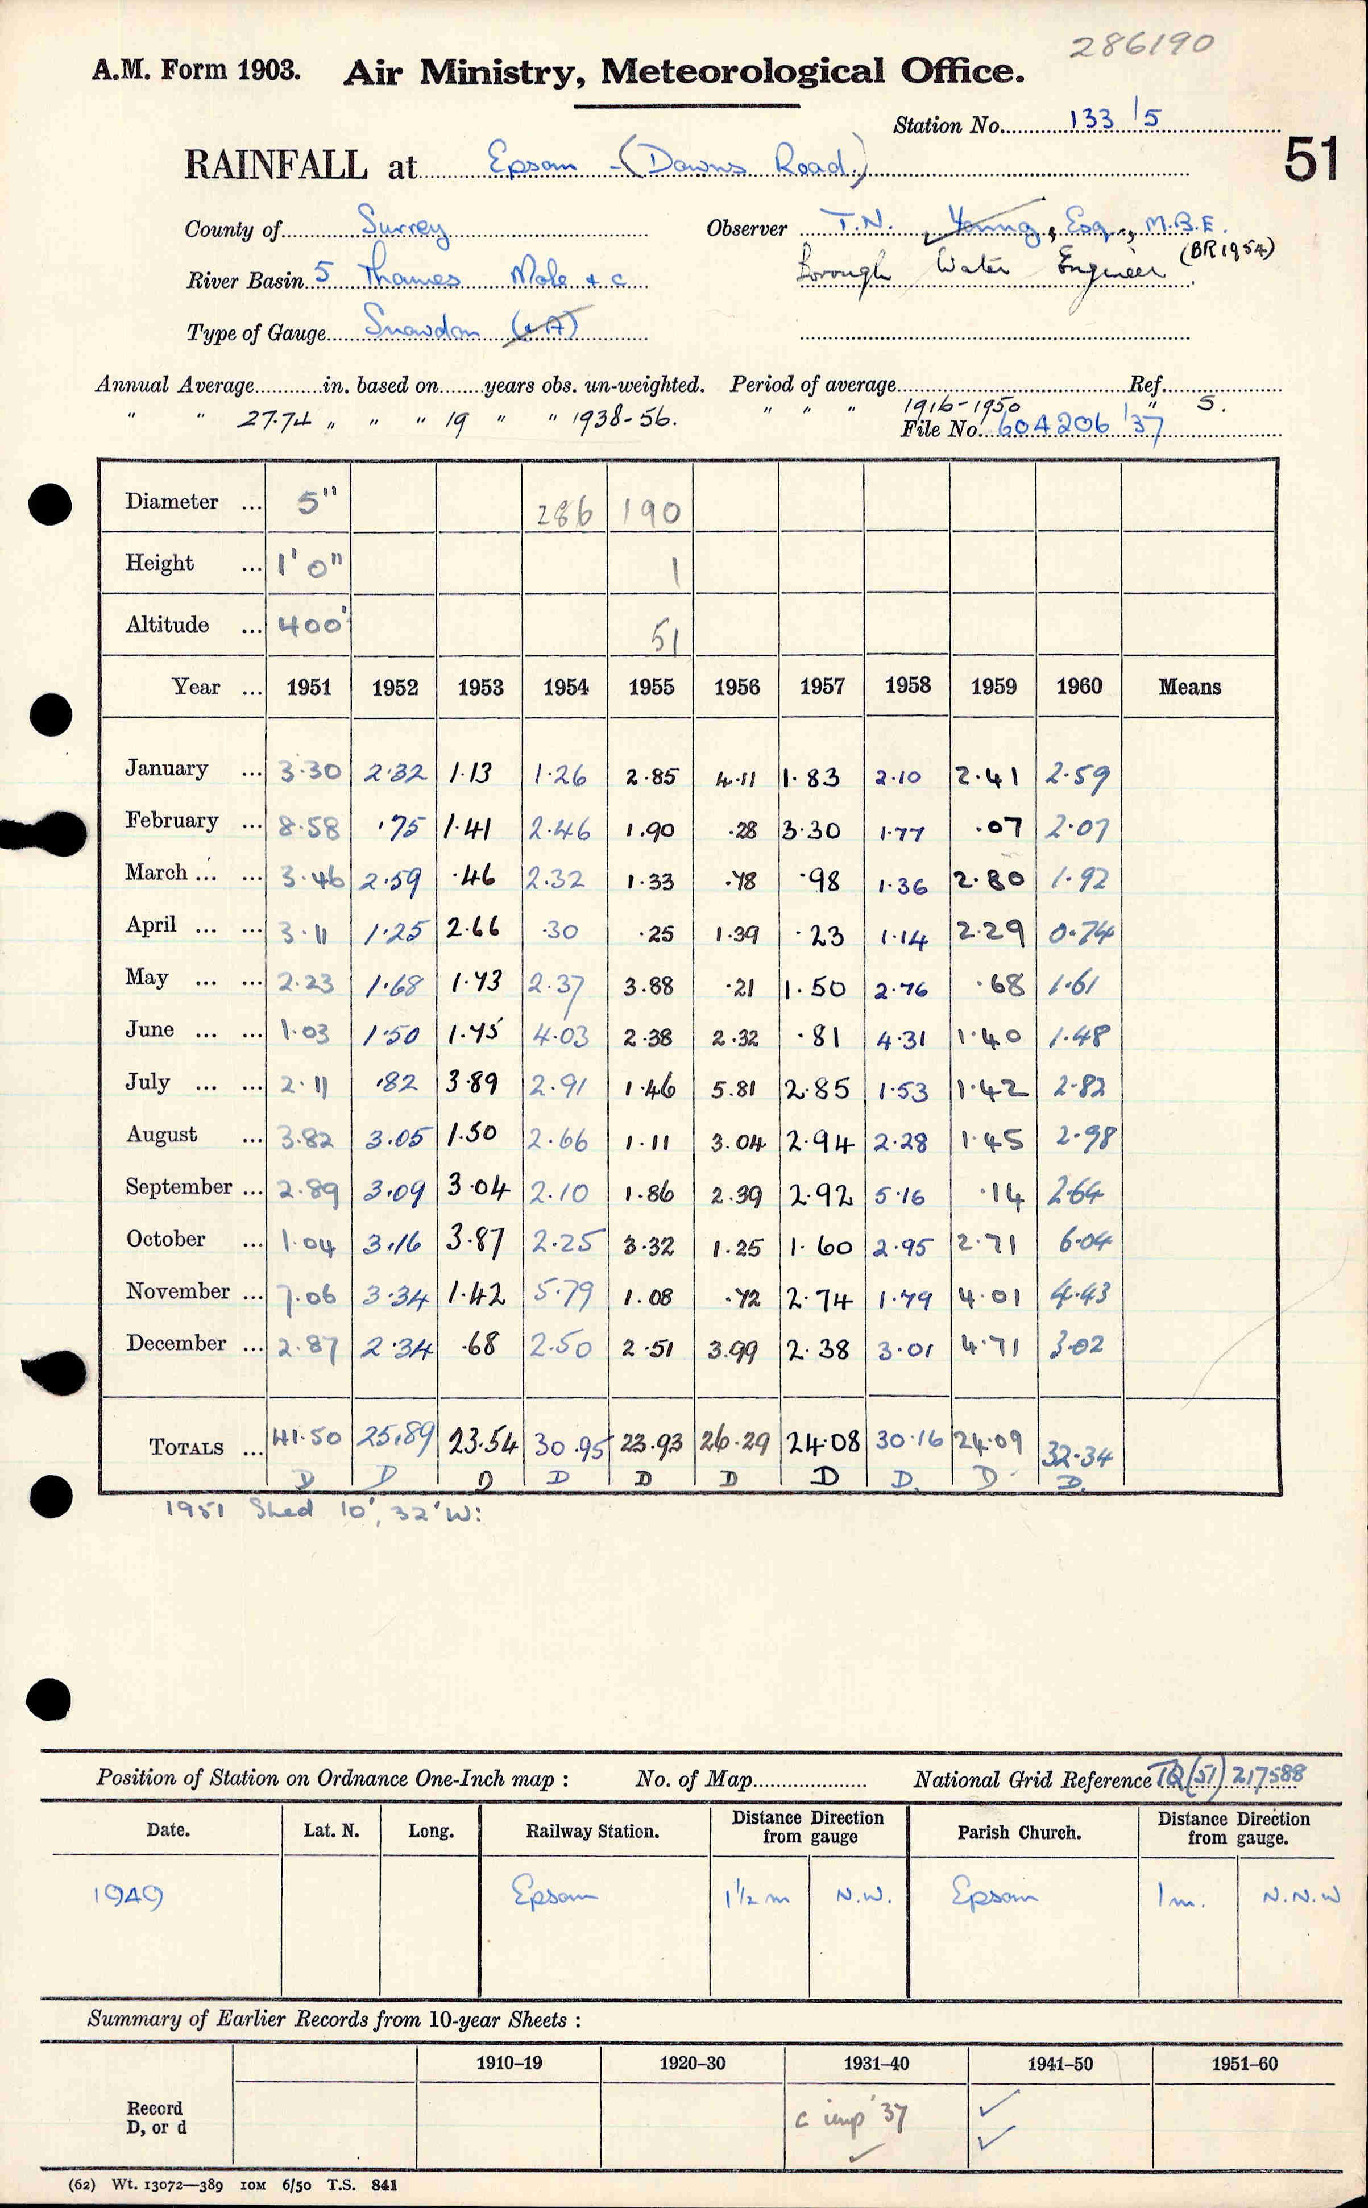 286190
A.M. Form 1903. Air Ministry, Meteorological Office.
Station No. 133/5
51
RAINFALL at Epsom - (Downs Road)
County of Surrey Observer T.N. Young, Esq., M.B.E.
River Basin 5 Thames Mole & c Borough Water Engineer (BR 1954)
Type of Gauge Snowdon (& A)
Annual Average in. based on years obs. un-weighted. Period of average Ref.
" " 27.74 " " " 19 " " 1938-56. " " " 1916-1950 " 5.
File No. 604206/37
Diameter ... 5" 286 190
Height ... 1' 0" 1
Altitude ... 400' 51
Year ... 1951 1952 1953 1954 1955 1956 1957 1958 1959 1960 Means
January ... 3.30 2.32 1.13 1.26 2.85 4.11 1.83 2.10 2.41 2.59
February ... 8.58 .75 1.41 2.46 1.90 .28 3.30 1.77 .07 2.07
March ... ... 3.46 2.59 .46 2.32 1.33 .78 .98 1.36 2.80 1.92
April ... ... 3.11 1.25 2.66 .30 .25 1.39 .23 1.14 2.29 0.74
May ... ... 2.23 1.68 1.73 2.37 3.88 .21 1.50 2.76 .68 1.61
June ... ... 1.03 1.50 1.75 4.03 2.38 2.32 .81 4.31 1.40 1.48
July ... ... 2.11 .82 3.89 2.91 1.46 5.81 2.85 1.53 1.42 2.82
August ... 3.82 3.05 1.50 2.66 1.11 3.04 2.94 2.28 1.45 2.98
September ... 2.89 3.09 3.04 2.10 1.86 2.39 2.92 5.16 .14 2.64
October ... 1.04 3.16 3.87 2.25 3.32 1.25 1.60 2.95 2.71 6.04
November ... 7.06 3.34 1.42 5.79 1.08 .72 2.74 1.79 4.01 4.43
December ... 2.87 2.34 .68 2.50 2.51 3.99 2.38 3.01 4.71 3.02
TOTALS ... 41.50 25.89 23.54 30.95 23.93 26.29 24.08 30.16 24.09 32.34
D D D D D D D D. D. D.
1951 Shed 10', 32' W:
Position of Station on Ordnance One-Inch map : No. of Map National Grid Reference TQ(51) 217588
Date. Lat. N. Long. Railway Station. Distance Direction from gauge Parish Church. Distance Direction from gauge.
1949 Epsom 1½ m N.W. Epsom 1m. N.N.W
Summary of Earlier Records from 10-year Sheets :
1910–19 1920–30 1931–40 1941–50 1951–60
Record D, or d c imp '37 ✓ ✓ ✓
(62) Wt. 13072—389 10M 6/50 T.S. 841